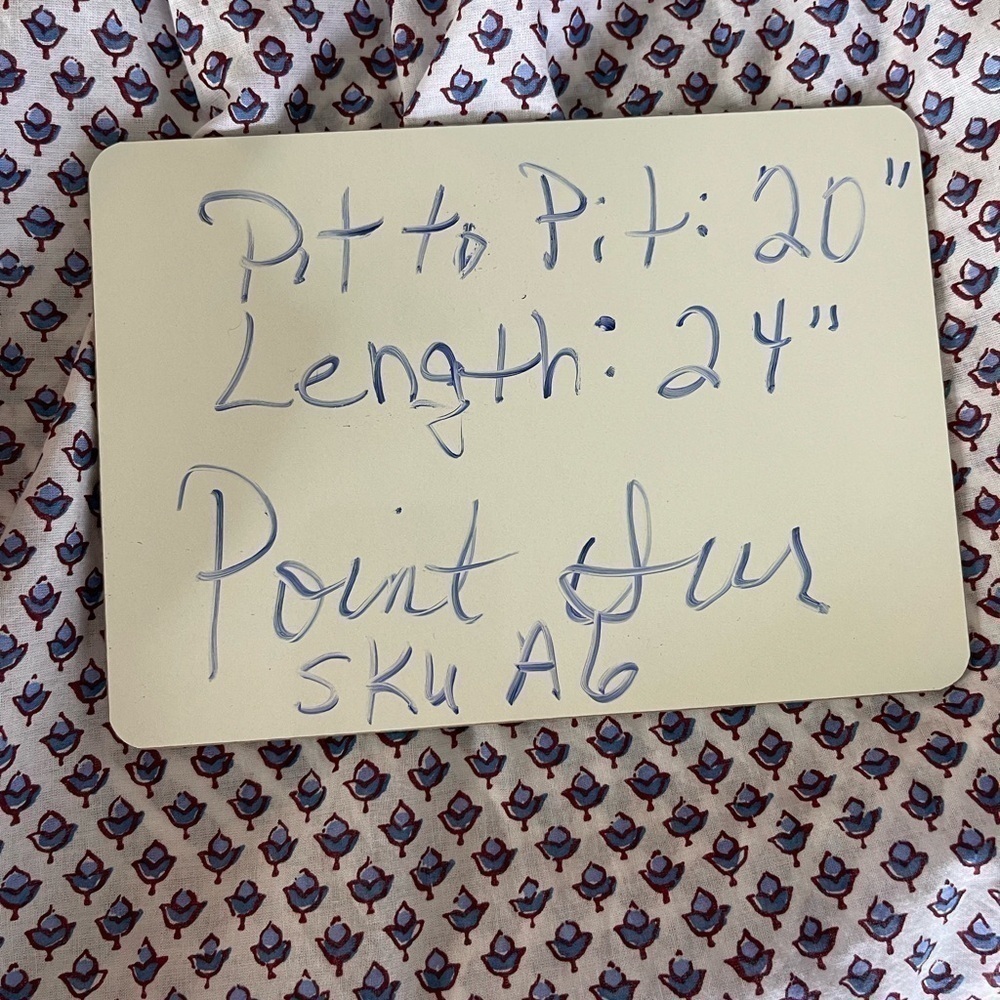 Pit to Pit: 20"
Length: 24"
Point Sur
SKU A6